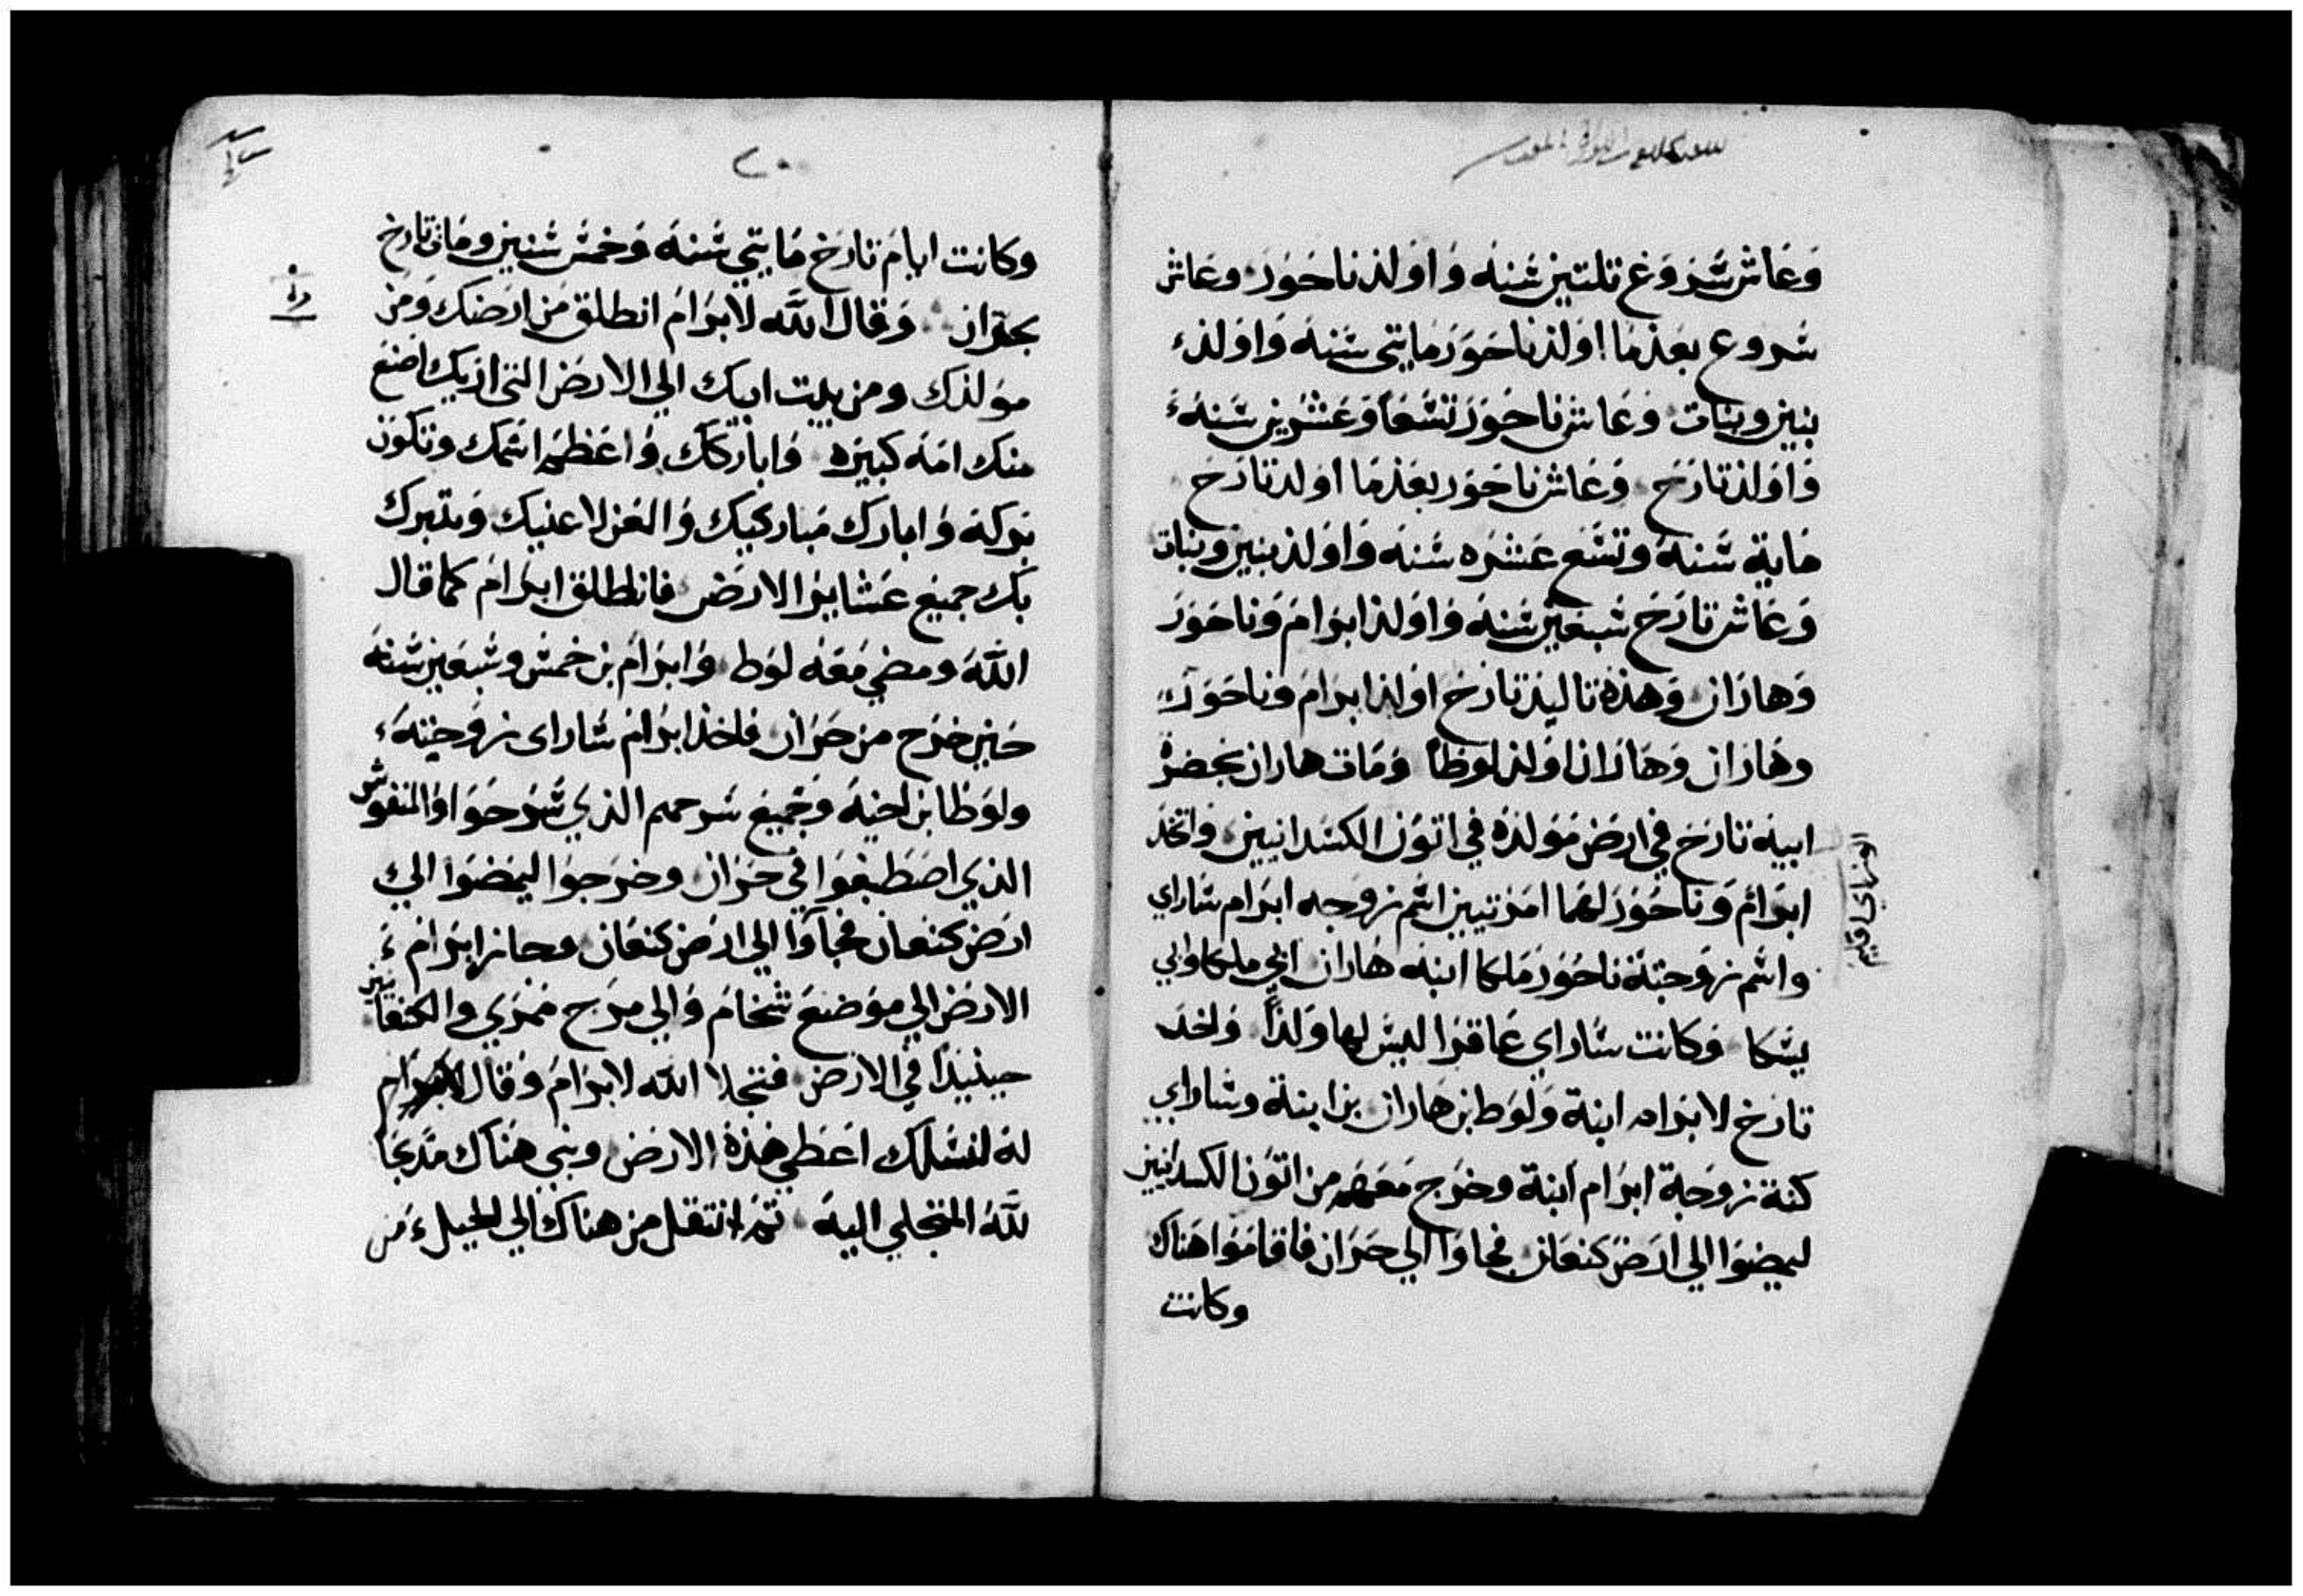 وعاش شروغ تلتين شنه واولد ناحور وعاش
شروع بعدما اولد ناحور مايتي شنه واولد
بنين وبنات وعاش ناحور تشعا وعشرين شنه
واولد تارخ وعاش ناحور بعدما اولد تارخ
ماية شنه وتشع عشره شنه واولد بنين وبنات
وعاش تارخ شبعين شنه واولد ابرام وناحور
وهاران وهذه تاليد تارخ اولد ابرام وناحور
وهاران وهاران اولد لوطا ومات هاران بحضرة
ابيه تارخ في ارض مولده في اتون الكسدانيين واتخد
ابرام وناحور لهما امرتيين اشم زوجه ابرام شاراي
واشم زوجتة ناحور ملكا ابنه هاران ابي ملكا وابي
يشكا وكانت شاراي عاقرا ليش لها ولدا واخد
تارخ لابرام ابنة ولوط بن هاران بن ابنة وشاراي
كنة زوجة ابرام ابنة وخرج معهم من اتون الكسدانيين
ليمضوا الي ارض كنعان فجاوا الي حران فاقاموا هناك
وكانت
وكانت ايام تارخ مايتي شنه وخمش شنين ومات تارخ
بحران وقال الله لابرام انطلق من ارضك ومن
مولدك ومن بيت ابيك الي الارض التي اريك اصنع
منك امه كبيره واباركك واعظم اشمك وتكون
بركه وابارك مباركيك والعن لاعنيك ويتبرك
بك جميع عشاير الارض فانطلق ابرام كما قال
الله ومضي معه لوط وابرام بن خمش وشبعين شنة
حين خرج من حران فاخد ابرام شاراي زوجته
ولوطا بن اخيه وجميع سرحهم الذي شرحوا والنفوش
الذي اصطبغوا في حران وخرجوا ليمضوا الي
ارض كنعان فجآوا الي ارض كنعان وجاز ابرام
الارض الي موضع شخام والي مرج ممري والكنعانيين
حينيدا في الارض فتجلا الله لابرام وقال
له لنسلك اعطي هذه الارض وبني هناك مدبحا
لله المتجلي اليه تم انتقل من هناك الي الجبل من